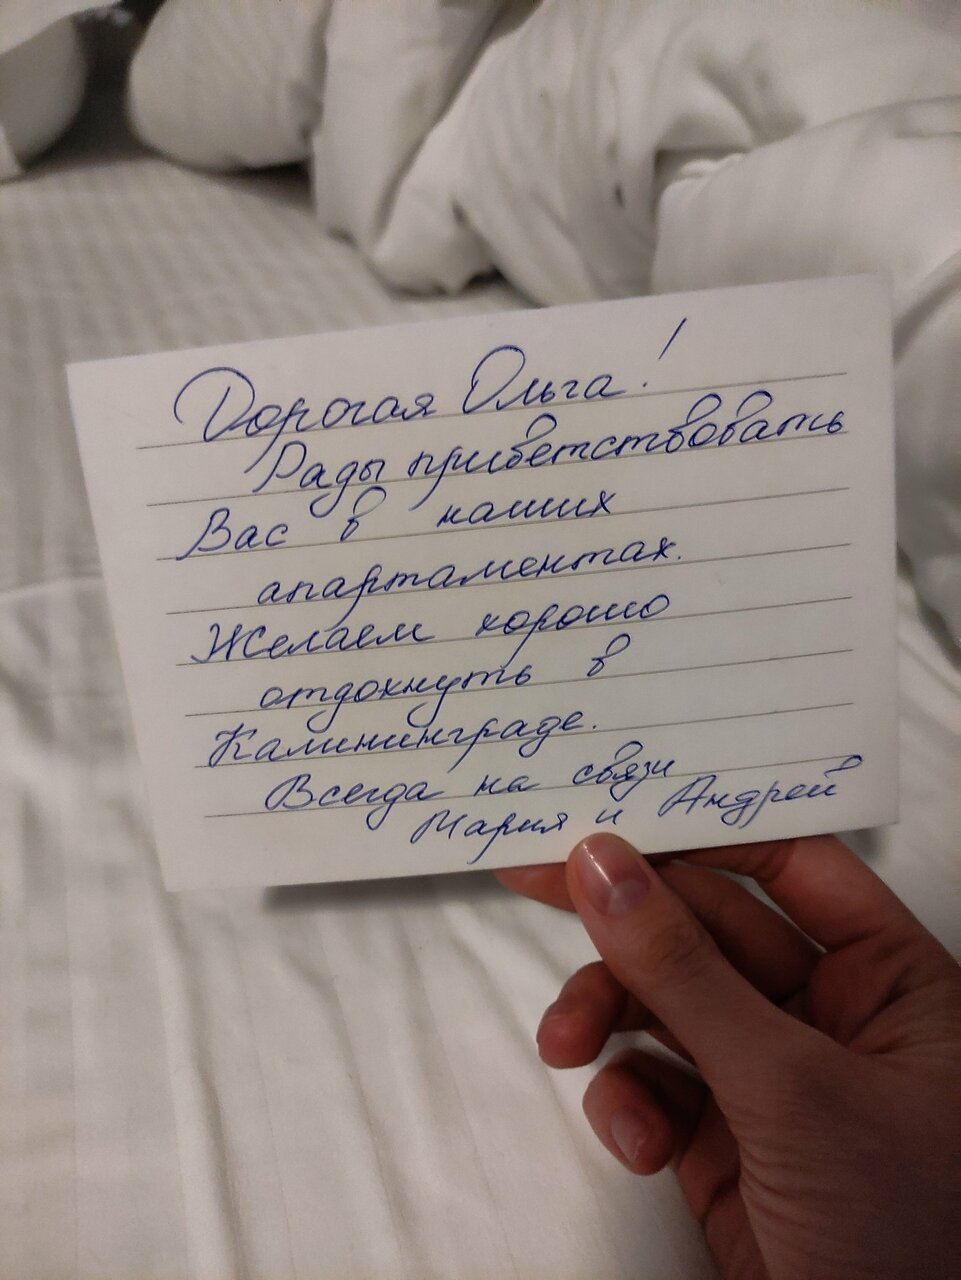 Дорогая Ольга!
Рады приветствовать
Вас в наших
апартаментах.
Желаем хорошо
отдохнуть в
Калининграде.
Всегда на связи
Мария и Андрей